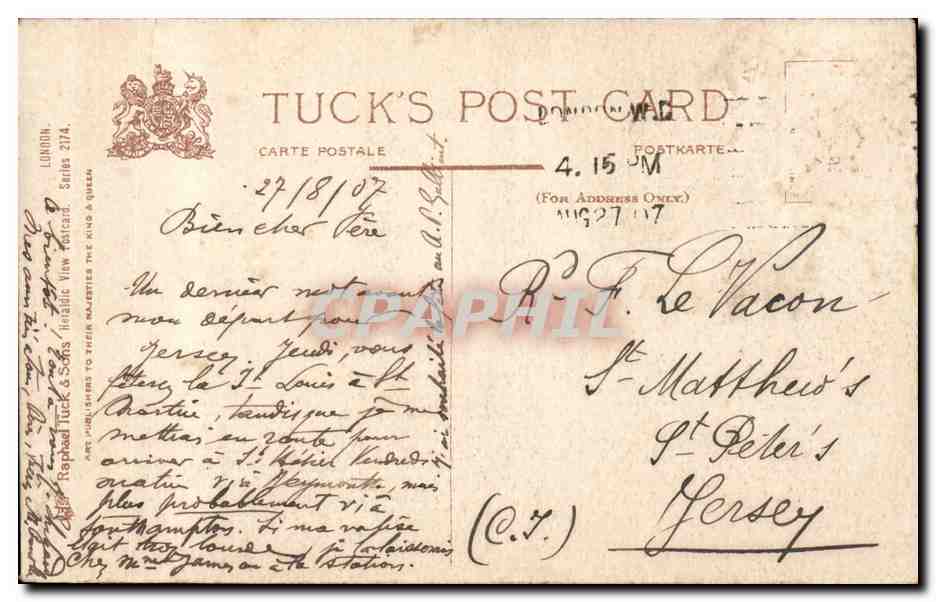 TUCK'S POST CARD
CARTE POSTALE
POSTKARTE
(FOR ADDRESS ONLY.)
LONDON W.C
4. 15 PM
AUG 27 07
27/8/07
Bien cher Père
Un dernier mot avant
mon départ pour
Jersey. Jeudi, vous
fêterez la St Louis à St
Martin, tandis que je me
mettrai en route pour
arriver à St Hélier Vendredi
matin viâ Weymouth, mais
plus probablement viâ
Southampton. Si ma valise
était trop lourde, je la laisserais
chez Mme James ou à la station.
au A. P.
à bientôt
R.d F. Le Vacon
St Matthew's
St Peter's
Jersey
(C.I)
LONDON.
Raphael Tuck & Sons' Heraldic View Postcard. Series 2174.
ART PUBLISHERS TO THEIR MAJESTIES THE KING & QUEEN
CPAPHIL